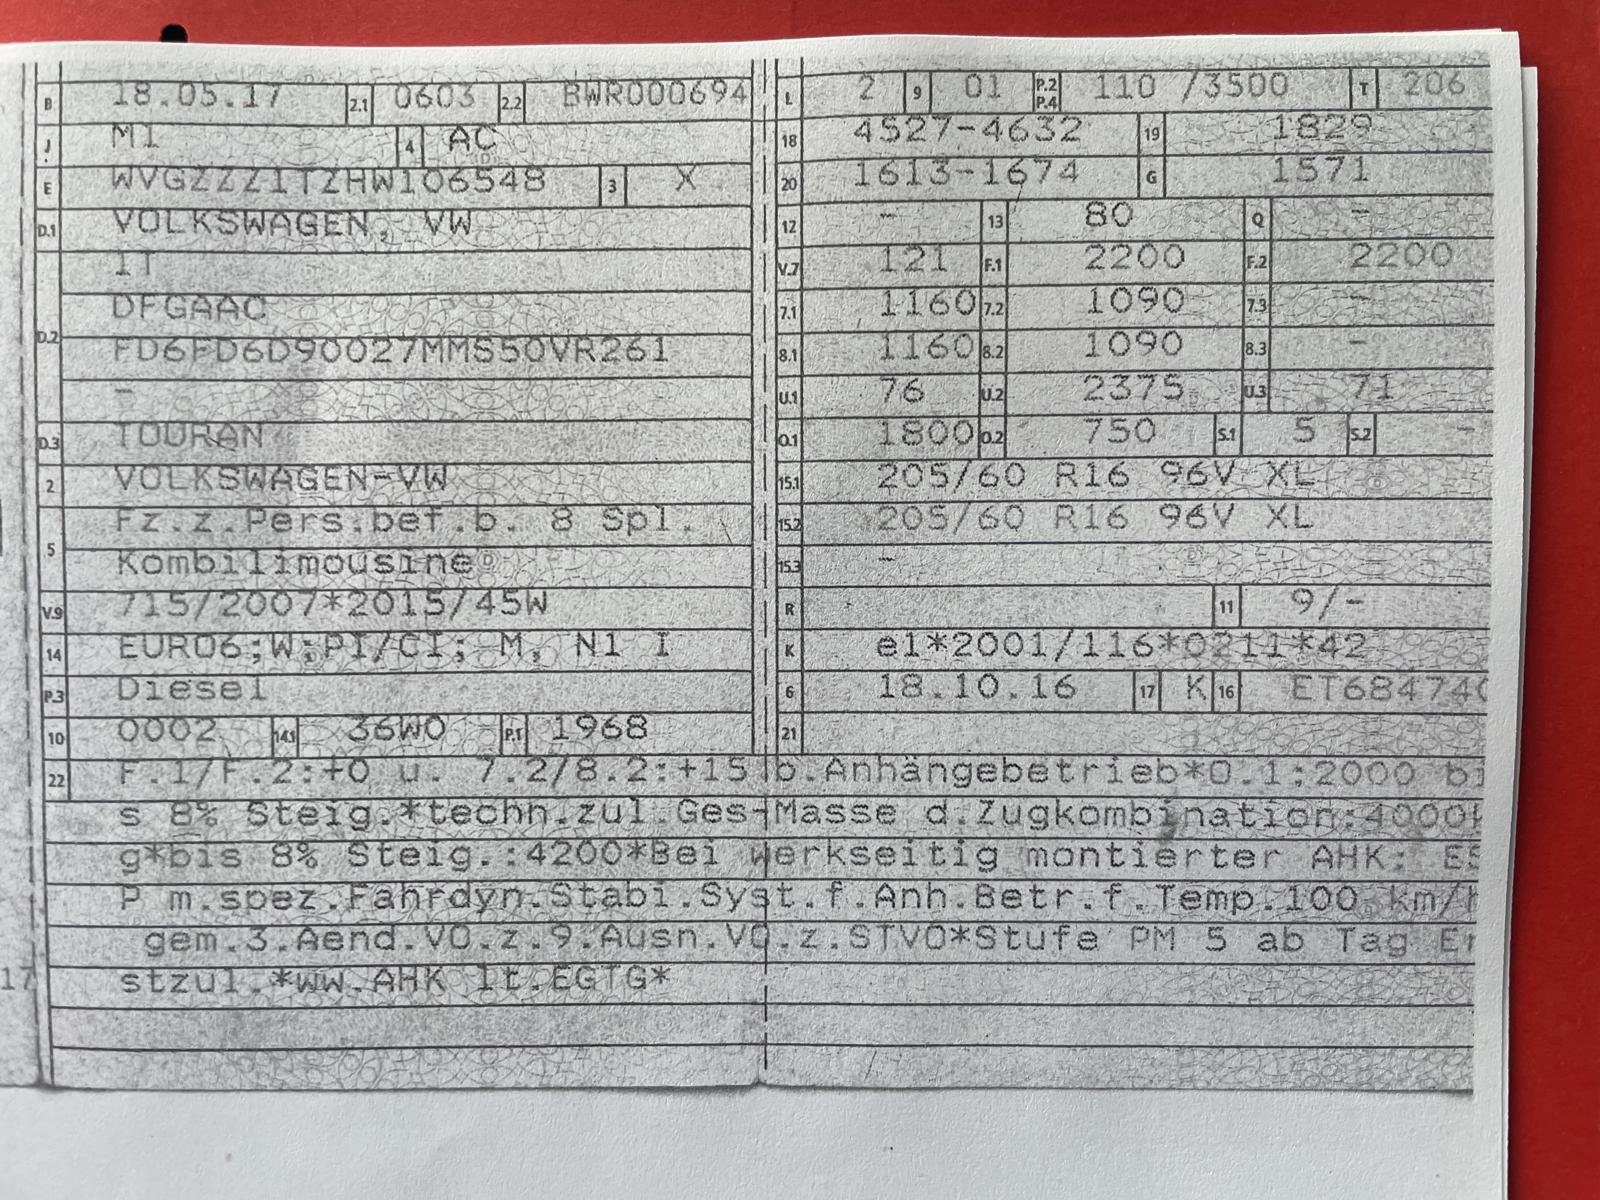 B 18.05.17 2.1 0603 2.2 BWR000694
J M1 4 AC
E WVGZZZ1TZHW106548 3 X
D.1 VOLKSWAGEN, VW
1T
D.2 DFGAAC
FD6FD6D90027MMS50VR261
-
D.3 TOURAN
2 VOLKSWAGEN-VW
5 Fz.z.Pers.bef.b. 8 Spl.
Kombilimousine
V.9 715/2007*2015/45W
14 EURO6;W;PI/CI; M, N1 I
P.3 Diesel
10 0002 14.1 36W0 P.1 1968
L 2 9 01 P.2 P.4 110 /3500 T 206
18 4527-4632 19 1829
20 1613-1674 G 1571
12 - 13 80 Q -
V.7 121 F.1 2200 F.2 2200
7.1 1160 7.2 1090 7.3 -
8.1 1160 8.2 1090 8.3 -
U.1 76 U.2 2375 U.3 71
O.1 1800 O.2 750 S.1 5 S.2 -
15.1 205/60 R16 96V XL
15.2 205/60 R16 96V XL
15.3 -
R 11 9/-
K e1*2001/116*0211*42
6 18.10.16 17 K 16 ET68474
21
22 F.1/F.2:+0 u. 7.2/8.2:+15 b.Anhängebetrieb*O.1:2000 bi
s 8% Steig.*techn.zul.Ges-Masse d.Zugkombination:4000k
g*bis 8% Steig.:4200*Bei werkseitig montierter AHK: ES
P m.spez.Fahrdyn.Stabi.Syst.f.Anh.Betr.f.Temp.100 km/h
gem.3.Aend.VO.z.9.Ausn.VO.z.STVO*Stufe PM 5 ab Tag Er
17 stzul.*ww.AHK lt.EGTG*